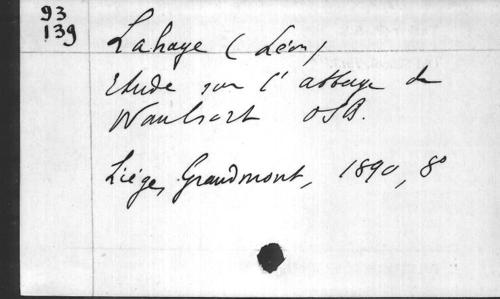 93
139
Lahaye (Léon)
Etude sur l'abbaye de
Waulsort OSB.
Liége, Grandmont, 1890, 8°